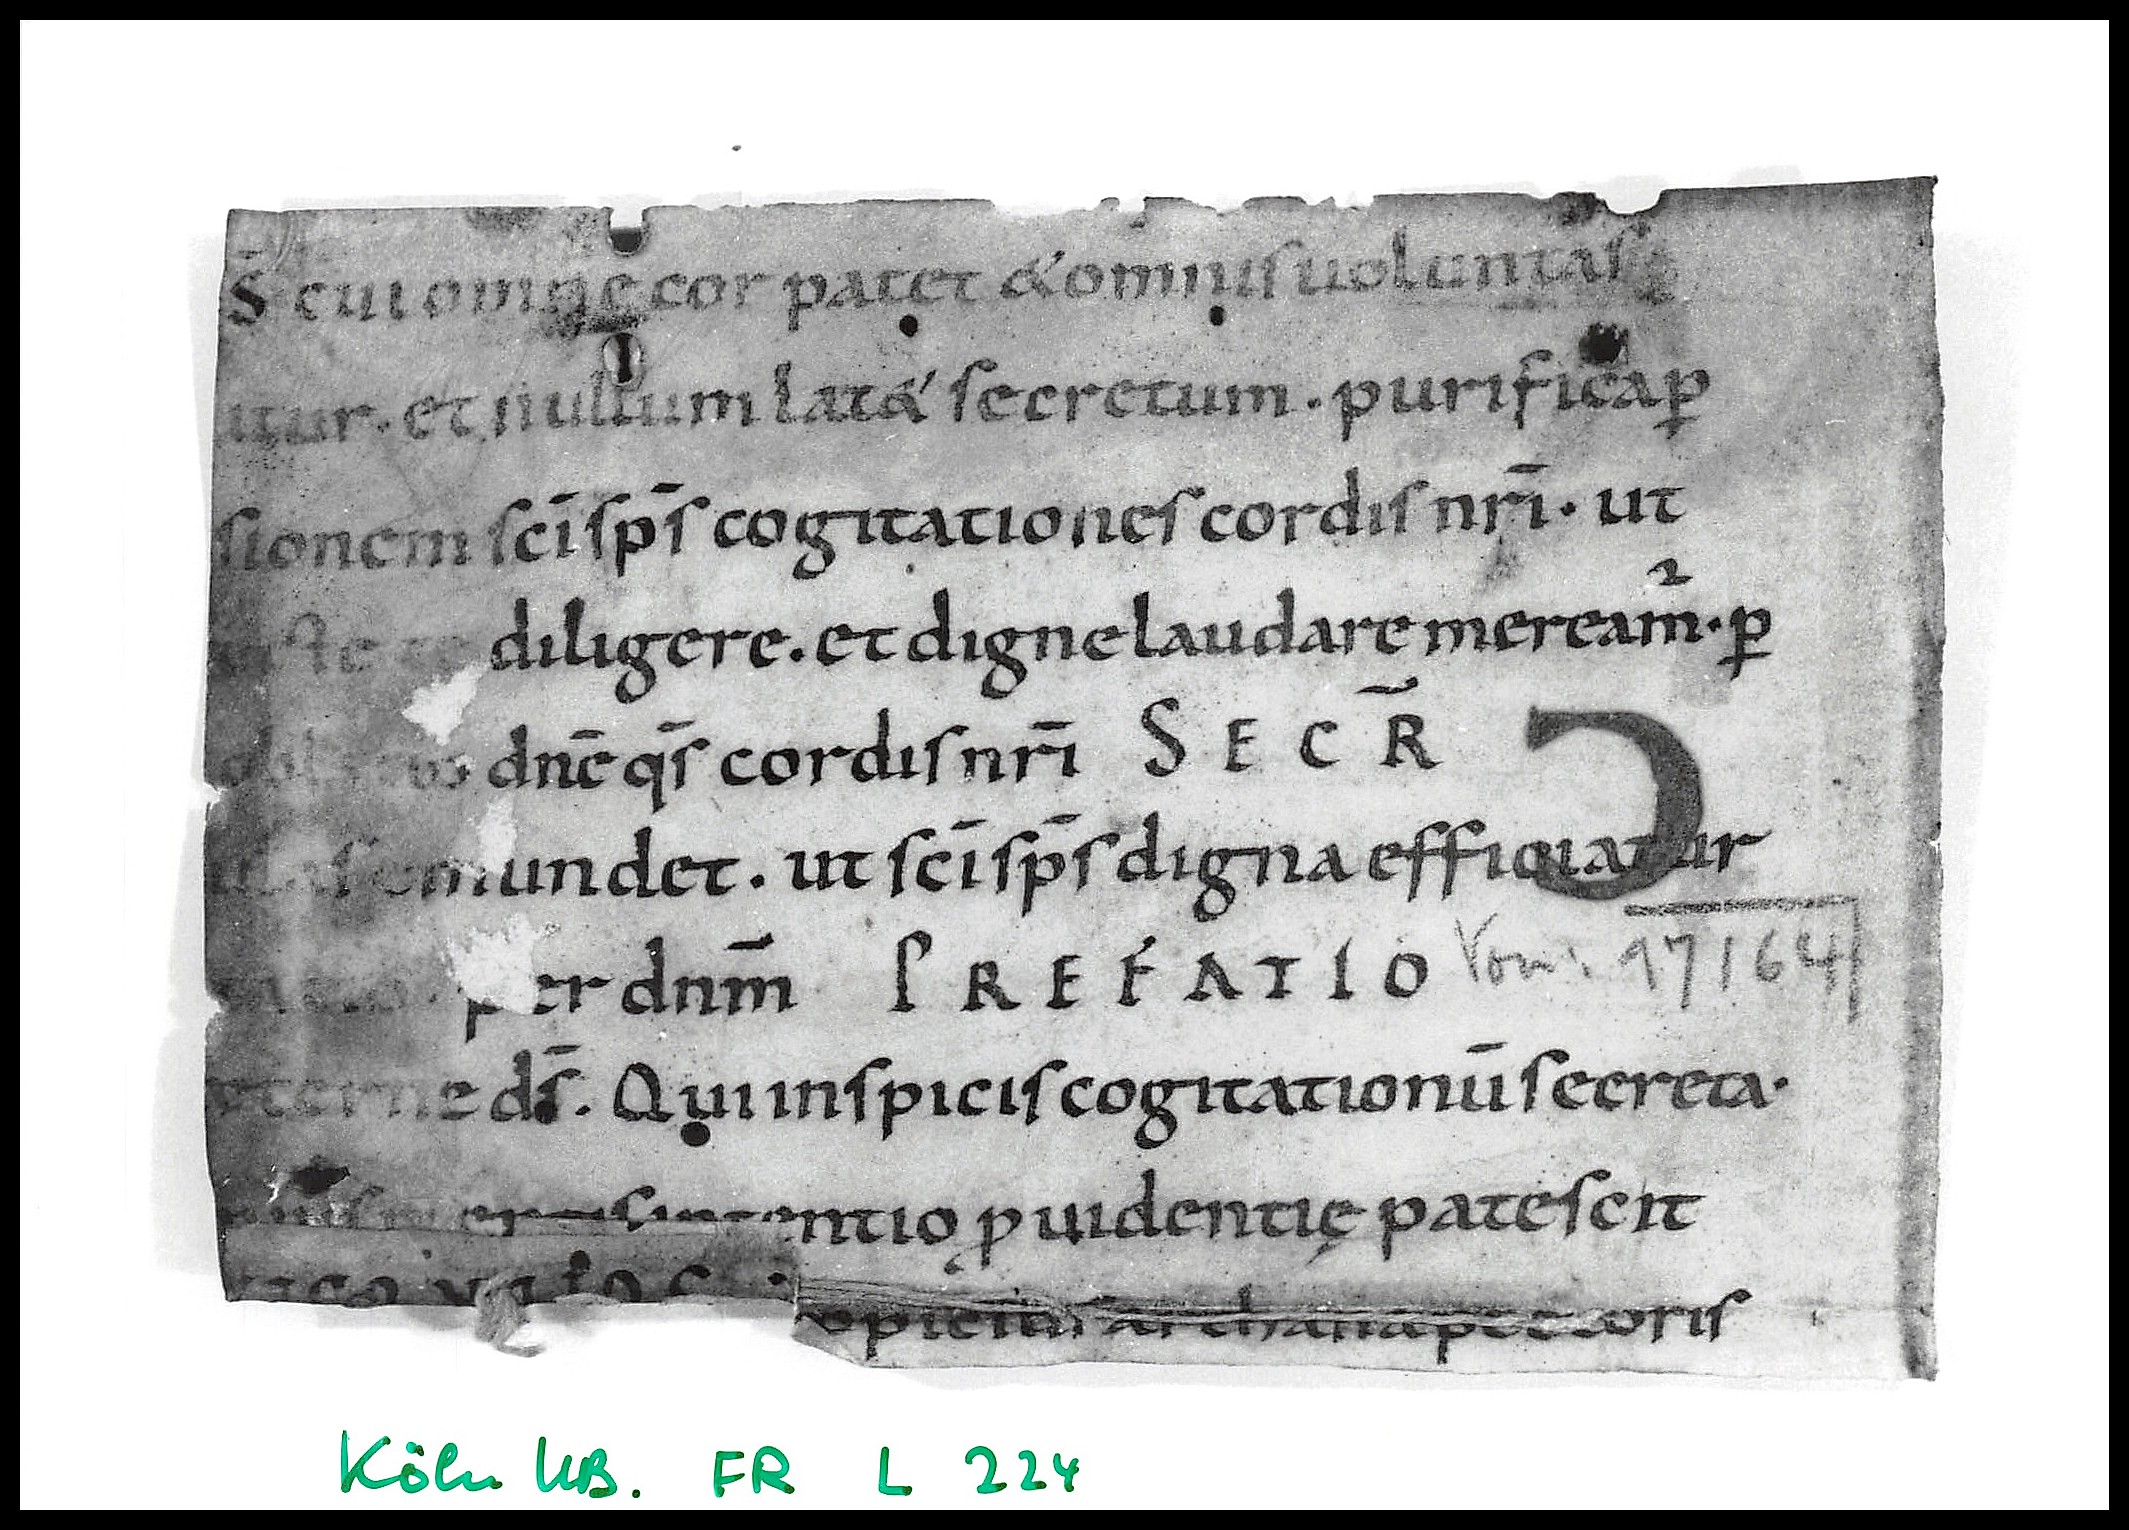 S̄ cui omne cor patet & om̄nis uoluntas
itur. et nullum lat& secretum. purifica ꝑ
sionem sc̄i sp̄s cogitationes cordis nr̄i. ut
diligere. et digne laudare meream̄. ꝑ
dn̄e qs̄ cordis nr̄i SECR̄
emundet. ut sc̄i sp̄s digna efficiatur
per dn̄m PREFATIO
Vorn. 17164
eterne ds̄. Qui inspicis cogitationū secreta.
intentio ꝓuidentię patescit
archana pectoris
Köln UB. FR L 224